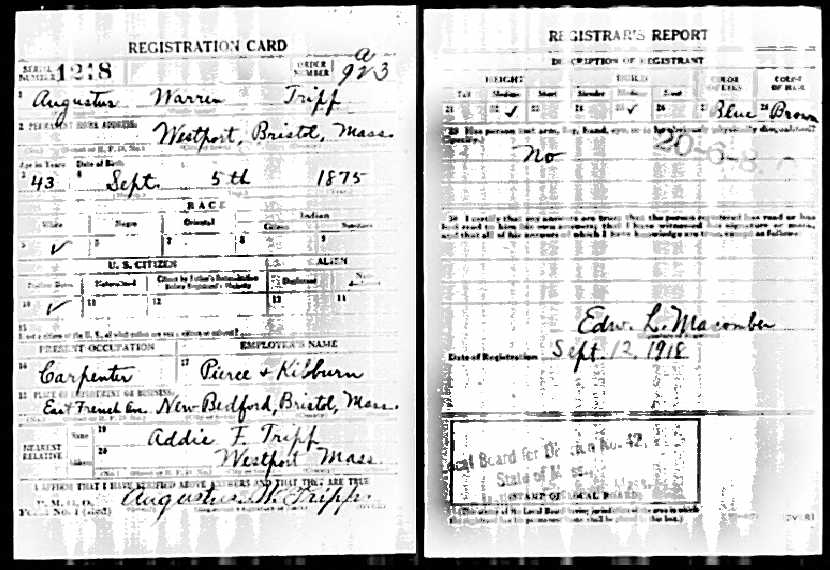 REGISTRATION CARD
SERIAL NUMBER 1218
ORDER NUMBER a 923
1 Augustus Warren Tripp
2 PERMANENT HOME ADDRESS: Westport, Bristol, Mass.
Age in Years Date of Birth
43 Sept. 5th 1875
RACE
White Negro Oriental Indian
Citizen
5 ✓ 6 7 8 9
U. S. CITIZEN ALIEN
10 ✓ 11 12 13 14
15
PRESENT OCCUPATION EMPLOYER'S NAME
16 Carpenter 17 Pierce & Kilburn
18 PLACE OF EMPLOYMENT OR BUSINESS:
East French Av. New Bedford, Bristol, Mass.
NEAREST RELATIVE Name 19 Addie F. Tripp
Address 20 Westport Mass.
I AFFIRM THAT I HAVE VERIFIED ABOVE ANSWERS AND THAT THEY ARE TRUE
P. M. G. O.
Form No. 1 (Red) Augustus W. Tripp
(OVER)
REGISTRAR'S REPORT
DESCRIPTION OF REGISTRANT
HEIGHT BUILD COLOR OF EYES COLOR OF HAIR
Tall Medium Short Slender Medium Stout
21 22 ✓ 23 24 25 ✓ 26 27 Blue 28 Brown
29 Has person lost arm, leg, hand, eye, or is he obviously physically disqualified?
(Specify.)
No
20-6-8.
30 I certify that my answers are true; that the person registered has read or has
had read to him his own answers; that I have witnessed his signature or mark,
and that all of his answers of which I have knowledge are true, except as follows:
Edw. L. Macomber
Date of Registration Sept. 12, 1918
Local Board for Division No. 42,
State of Mass.
(STAMP OF LOCAL BOARD)
(The stamp of the Local Board having jurisdiction of the area in which
the registrant has his permanent home shall be placed in this box.)
(OVER)